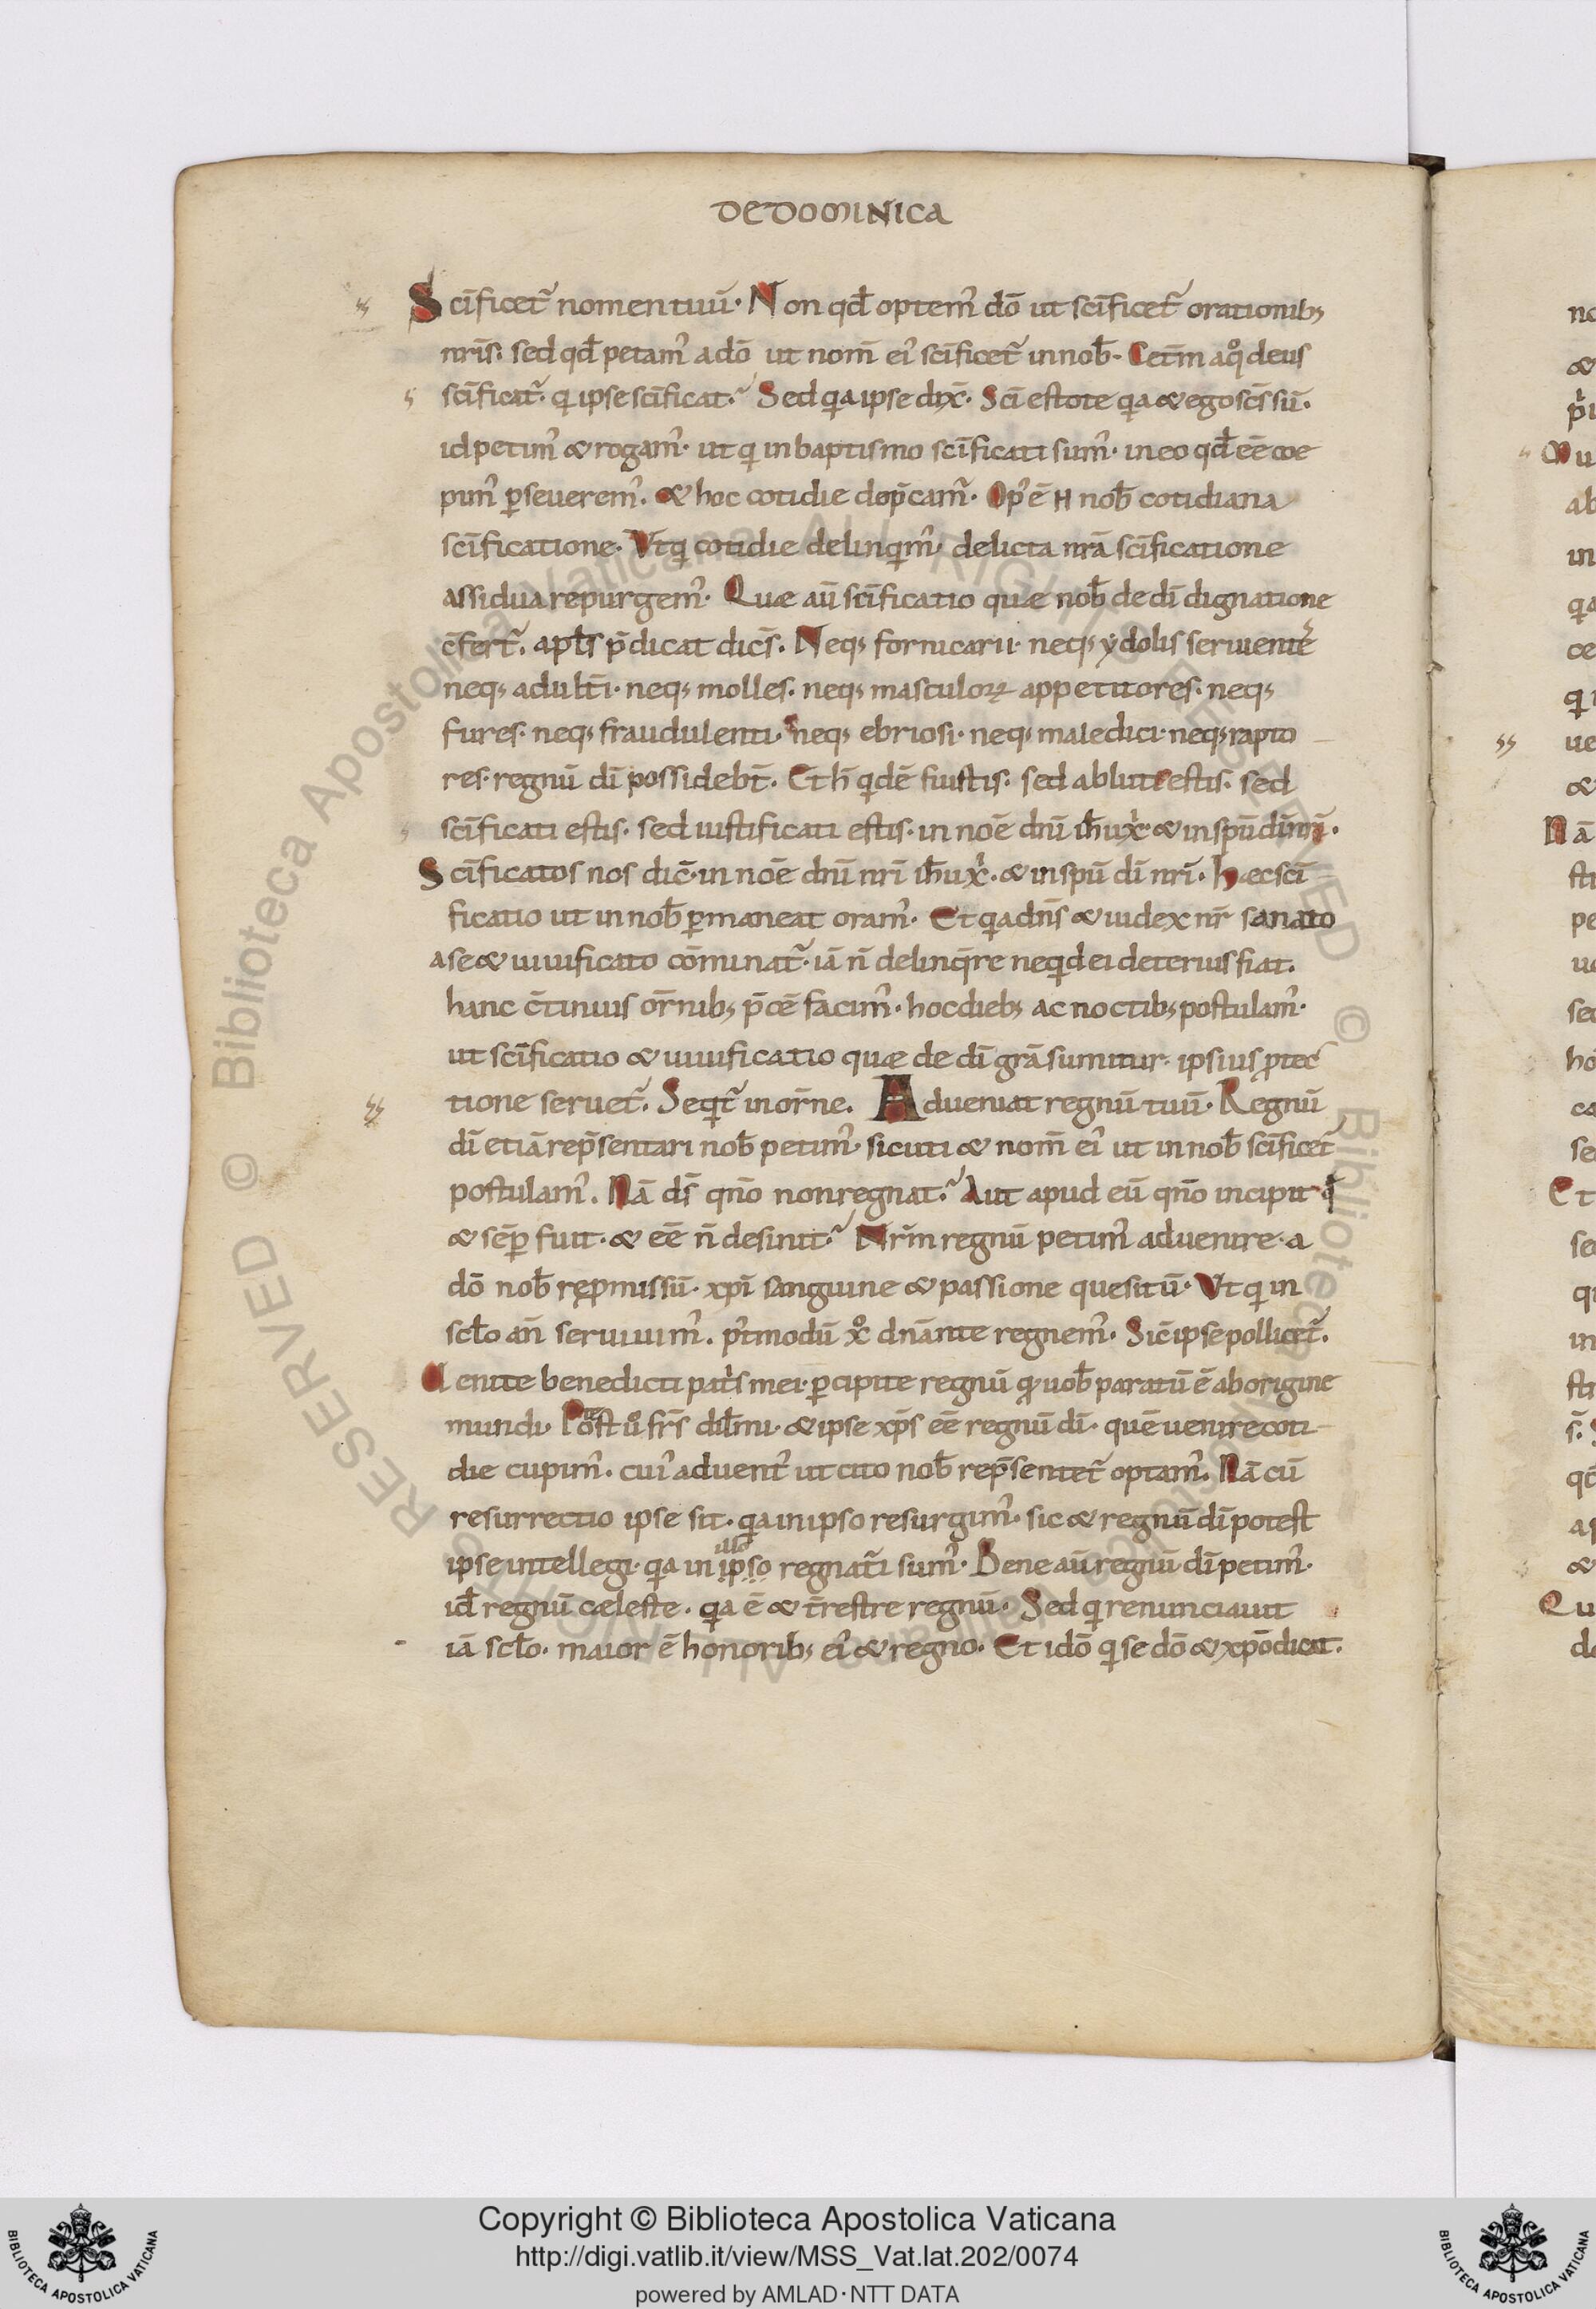 DE DOMINICA
Scīficet᷑ nomen tuū· Non qđ optem᷒ dō ut scīficet᷑ orationibꝫ
nrīs. sed qđ petam᷒ a dō ut nom̄ ei᷒ scīficet᷑ in nob̄· Cet̄m a qͦ deus
scīficat᷑. qi ipse scīficat. Sed qia ipse dix̄· Scī estote qia & ego scs̄ sū.
id petim᷒ & rogam᷒· ut qi in baptismo scīficati sum᷒· in eo qđ eē coe
pim᷒ ꝑseuerem᷒. & hoc cotidie dep̄cam᷑. Op᷒ ē H nob̄ cotidiana
scīficatione. Vt qi cotidie delinqim᷒ delicta nrā scīficatione
assidua repurgem᷒. Quae aū scīficatio quae nob̄ de dī dignatione
c̄fert᷑. apls̄ p̄dicat dic̄s. Neqꝫ fornicarii· neqꝫ ydolis seruientē
neqꝫ adult̄i· neqꝫ molles. neqꝫ masculoꝝ appetitores· neqꝫ
fures· neqꝫ fraudulenti· neqꝫ ebriosi· neqꝫ maledici· neqꝫ rapto
res· regnū dī possidebt̄. Et h̄ qidē fuistis. sed abluti estis. sed
scīficati estis. sed iustificati estis· in noē dnī ih̄u xp̄i & in spū dī nrī.
Scīficatos nos dic̄· in noē dnī nrī ih̄u xp̄i· & in spū dī nrī. haec scī
ficatio ut in nob̄ ꝑmaneat oram᷒. Et qia dns̄ & iudex nr̄ sanato
a se & uiuificato cōminat᷑· iā n̄ delinqire ne qid ei deterius fiat.
hanc c̄tinuis or̄nibꝫ p̄cē facim᷒· hoc diebꝫ ac noctibꝫ postulam᷒·
ut scīficatio & uiuificatio quae de dī grā sumitur· ipsius ꝓtec
tione seruet᷑. Seqit᷑ in or̄ne. Adueniat regnū tuū· Regnū
dī etiā rep̄sentari nob̄ petim᷒ sicuti & nom̄ ei᷒ ut in nob̄ scīficet᷑
postulam᷒. Nā ds̄ qn̄o non regnat. Aut apud eū qn̄o incipit qđ
& sēꝑ fuit· & eē n̄ desinit. Nrm̄ regnū petim᷒ aduenire· a
dō nob̄ reꝓmissū· xpī sanguine & passione quesitū· Vt qi in
sclo̅ an̄ seruiuim᷒. p᷒tmodū xͦ dnānte regnem᷒. Sic̄ ipse pollicet᷑.
Venite benedicti pat̄s mei· ꝑcipite regnū qi uob̄ paratū ē ab origine
mundi· Potest uͦ frs̄ dilm̄i· & ipse xp̄s eē regnū dī· quē uenire coti
die cupim᷒. cui᷒ aduent᷒ ut cito nob̄ rep̄sentet᷑ optam᷒. Nā cū
resurrectio ipse sit· qia in ipso resurgim᷒· sic & regnū dī potest
ipse intellegi· qia in ipso illo regnat᷑i sum᷒. Bene aū regnū dī petim᷒·
id̄ regnū caeleste. qia ē & t̄restre regnū. Sed qi renunciauit
iā sclo̅. maior ē honoribꝫ ei᷒ & regno. Et idō qi se dō & xpō dicat.
Copyright © Biblioteca Apostolica Vaticana
http://digi.vatlib.it/view/MSS_Vat.lat.202/0074
powered by AMLAD·NTT DATA
BIBLIOTECA APOSTOLICA VATICANA
BIBLIOTECA APOSTOLICA VATICANA